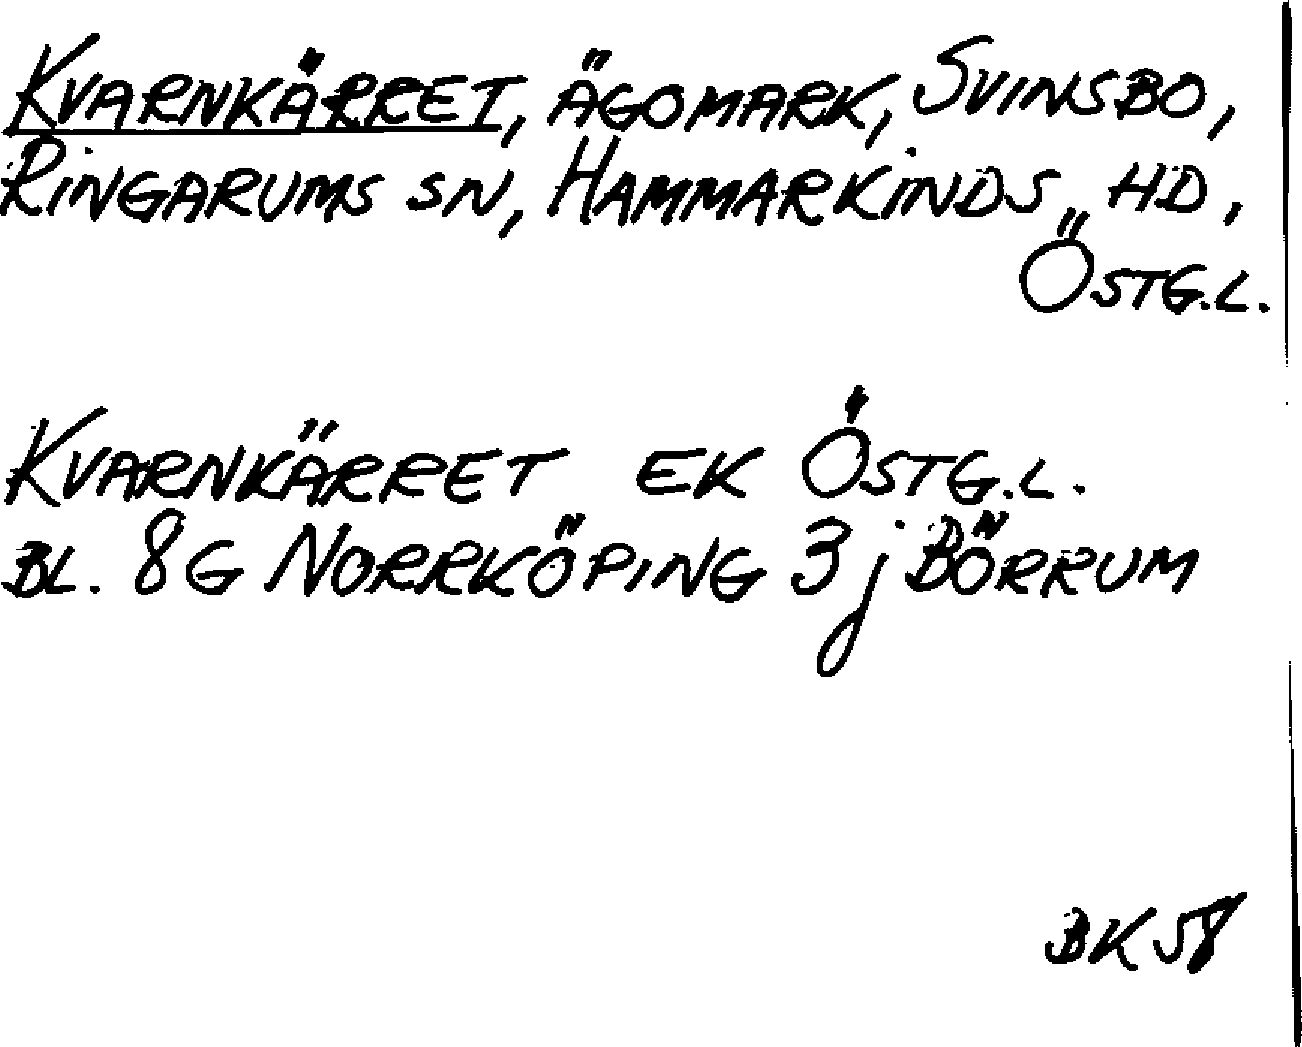 KVARNKÄRRET, ÄGOMARK, SVINSBO,
RINGARUMS SN, HAMMARKINDS HD,
ÖSTG.L.
KVARNKÄRRET EK ÖSTG.L.
BL. 8G NORRKÖPING 3j BÖRRUM
BK 58